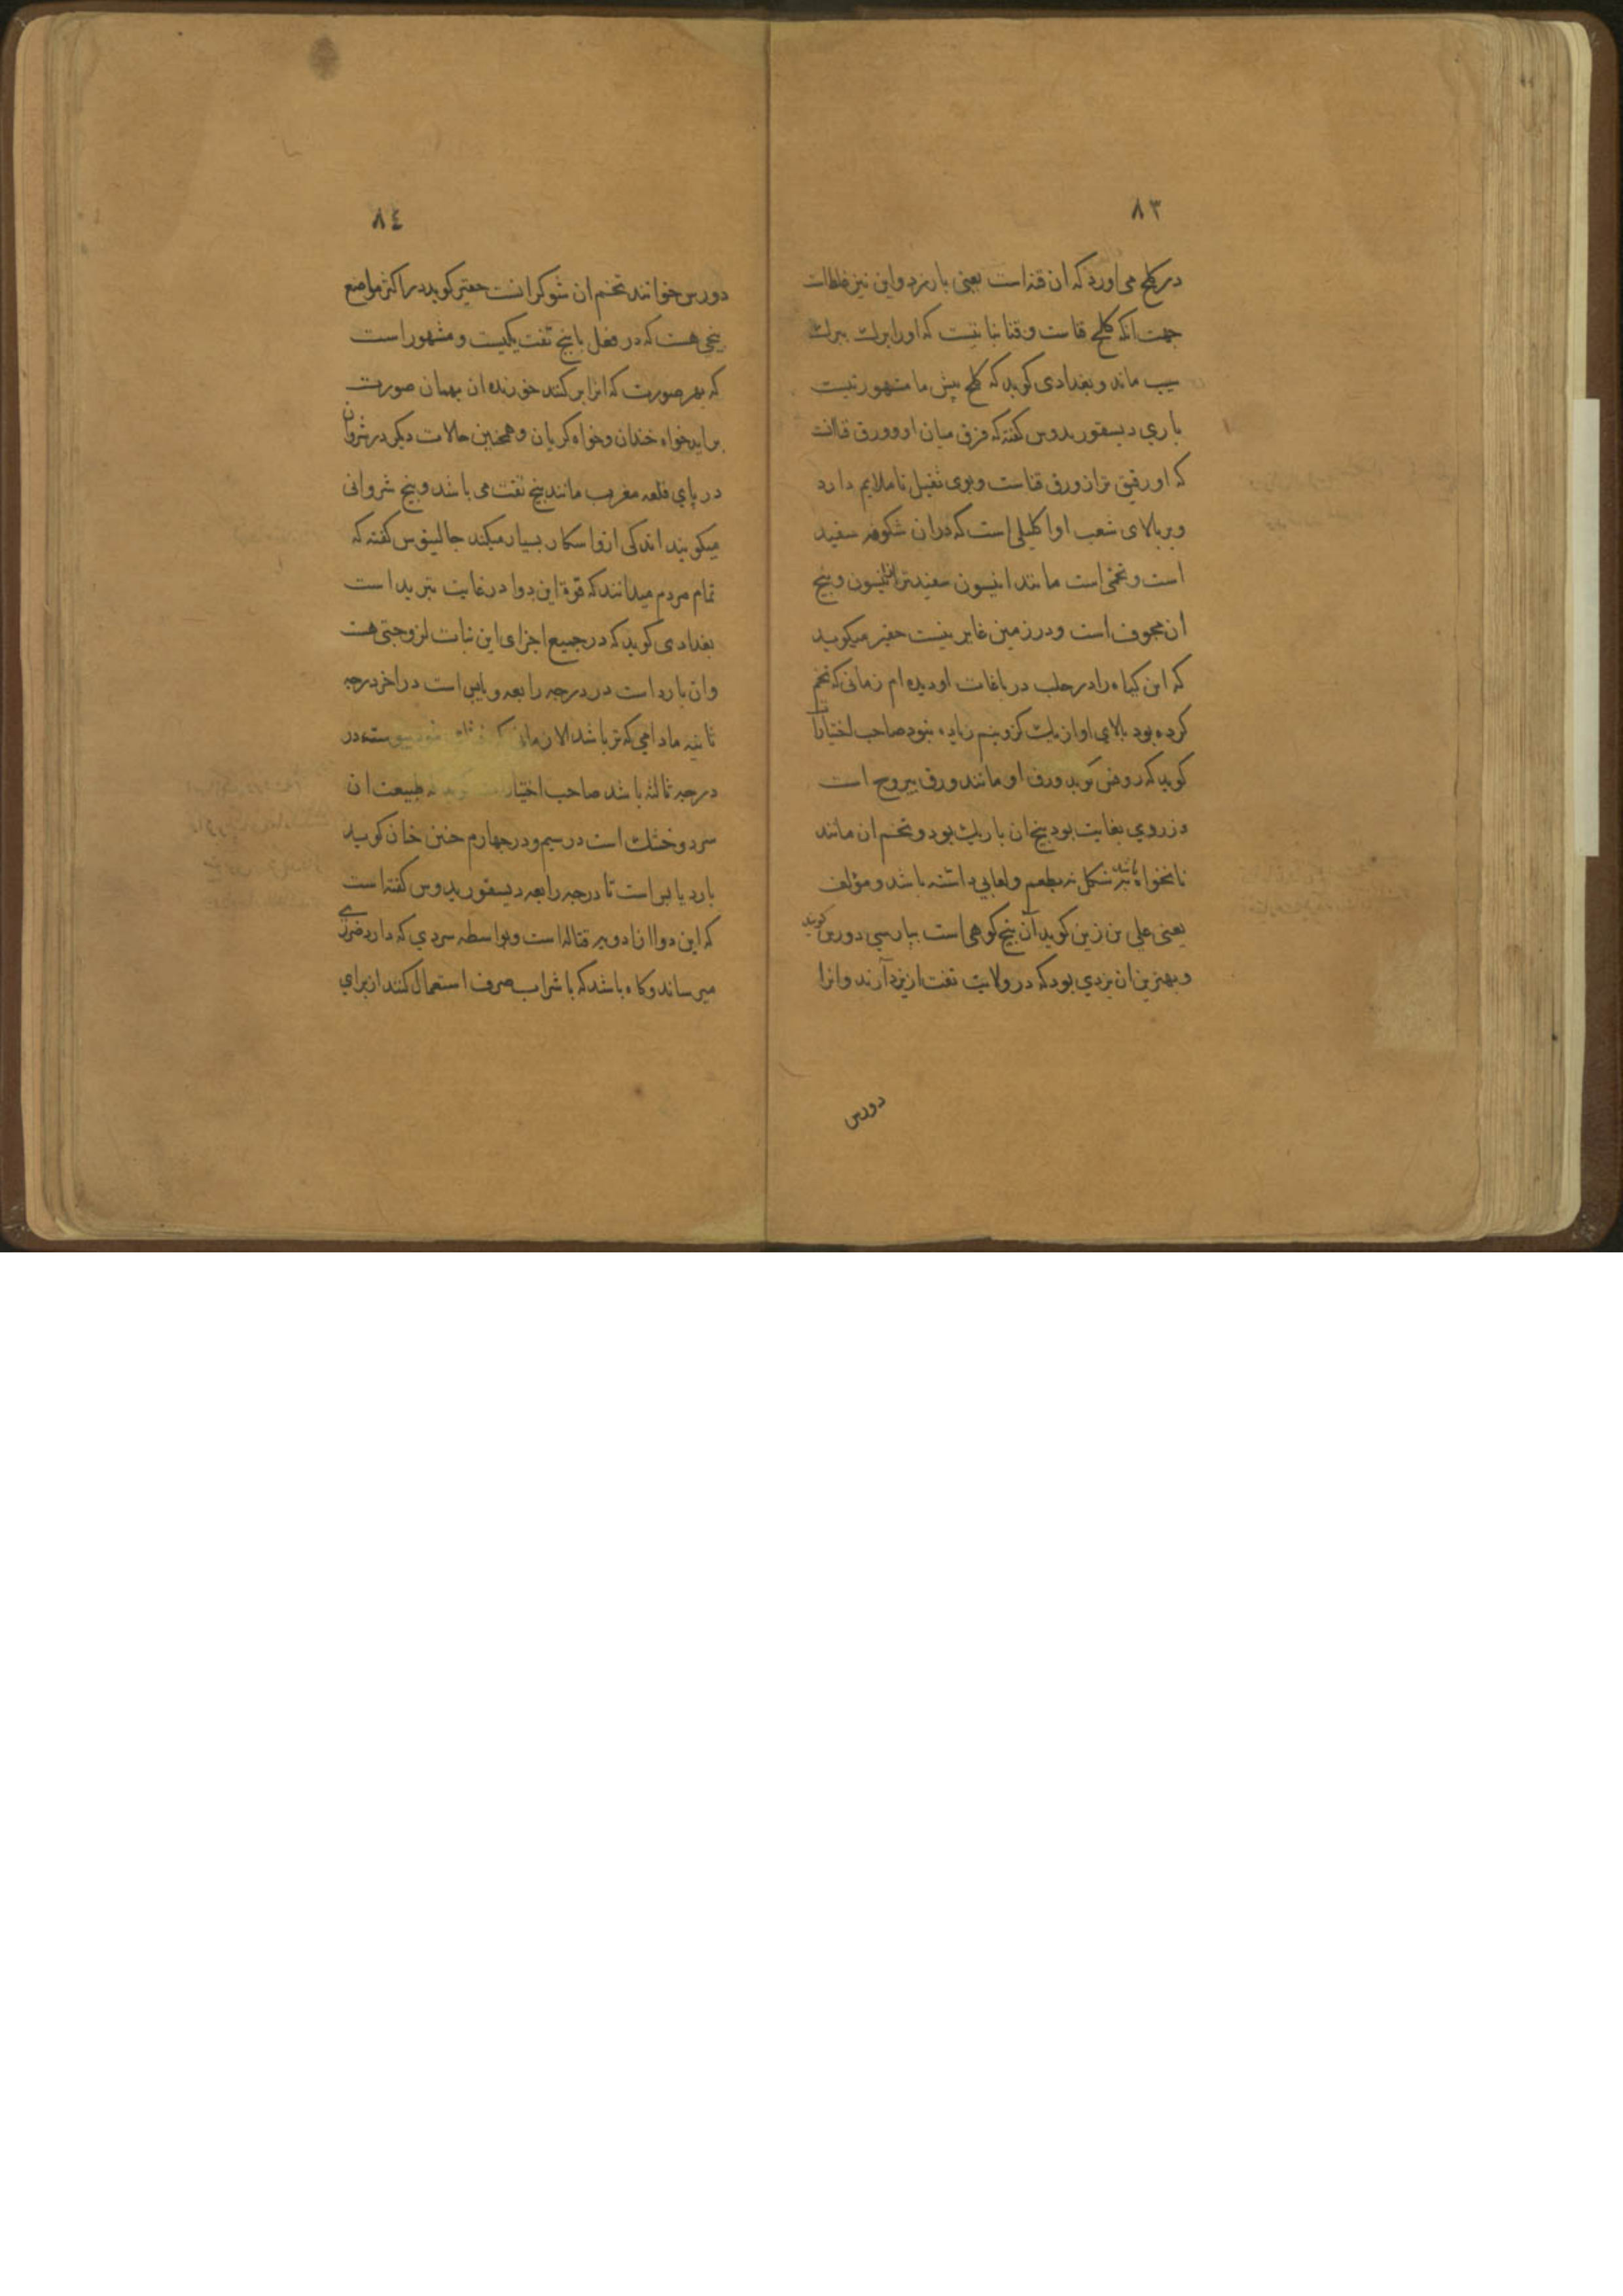 ٨٣
در کلخ می اورد که ان قنه است یعنی بارزد واین نیز غلط است
جهت انکه کلخ قناست وقنا نباتیست که اورا برک ببرک
سیب ماند وبغدادی کوید که کلخ پیش ما مشهور نیست
باری دیسقوریدوس کفته که فرق میان او وورق قنا انت
که او رقیق تر از ورق قناست وبوی ثقیل ناملایم دارد
وبر بالای شعب او اکلیلی است که دران شکوفه سفید
است وتخمی است مانند انیسون سفیدتر از انیسون وبیخ
ان مجوف است ودر زمین غایر نیست حقیر میکوید
که این کیاه را در حلب در باغات او دیده ام زمانی که تخم
کرده بود بالای او از یک کز ونیم زیاده نبود صاحب اختیارات
کوید که روفس کوید ورق او مانند ورق یبروح است
وزردی بغایت بود بیخ ان باریک بود وتخم ان مانند
نانخواه باشد بشکل نه بطعم ولعابی داشته باشد ومؤلف
یعنی علی بن زین کوید آن بیخ کوهی است بپارسی دورس کویند
وبهترین ان یزدی بود که در ولایت تفت از یزد آرند وانرا
دورس
٨٤
دورس خوانند تخم ان شوکرانست حقیر کوید در اکثر مواضع
بیخی هست که در فعل با بیخ تفت یکیست ومشهور است
که بهر صورت که انرا بر کنند خورنده ان بهمان صورت
براید خواه خندان وخواه کریان وهمچنین حالات دیکر در شروان
در پای قلعه مغرب مانند بیخ تفت می باشد وبیخ شروانی
میکویند اندکی ازو اسکار بسیار میکند جالینوس کفته که
تمام مردم میدانند که قوة این دوا در غایت تبرید است
بغدادی کوید که در جمیع اجزای این نبات لزوجتی هست
وان بارد است در درجه رابعه ویابس است در اخر درجه
ثانیه مادامی که تر باشد الا زمانی که در
درجه ثالثه باشد صاحب اختیارات کوید که طبیعت ان
سرد وخشک است در سیم ودر چهارم حنین خان کوید
بارد یابس است تا درجه رابعه دیسقوریدوس کفته است
که این دوا از ادویه قتاله است وبواسطه سردی که دارد ضرری
میرساند وکاه باشد که با شراب صرف استعمال کنند از برای